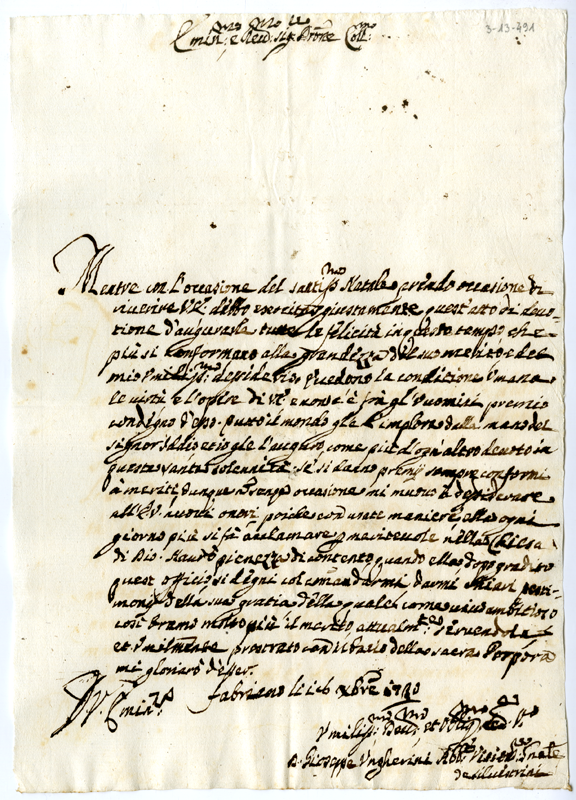 3-13-491
Emin: e Reu: Sig Prone Coll:
Mentre con l'occasione del santiss.mo Natale prendo occasione di
riuerire V.E. debbo esercitar giustamente quest'atto di deuo-
tione d'augurarle tutte le felicità in questo tempo che
più si conformano alla grandezza del suo merito e del
mio humiliss:mo desiderio. Eccedono la condizione humana
le uirtù e l'opere di V.E. e non u'è frà gl'huomini premio
condegno d'esso. tutto il mondo gle l'implora dalla mano del
signor Iddio et io gle l'auguro come più d'ogni altro deuoto in
questa santa solennità. Se si danno premij sempre conformi
à meriti dunque occasione mi muouo à desiderare
all'E.V. nuoui onori, poiche con uarie maniere ella ogni
giorno più si fà acclamare meriteuole nella Chiesa
di Dio. Haurò pienezza di contento quando ella dopo gradito
quest officio si degni col comandarmi darmi chiari testi-
monij della sua gratia della quale come uiuo ambitioso
così bramo molto più il merito attualm.te seruendola
et humilmente prostrato con il bacio della sacra Porpora
mi glorierò d'esser.
D. V. Emin:za
Fabriano li 16 Xbre 1720
Humiliss:mo Deu:mo et Oblig:mo
D. Giuseppe Ungherini Ab: Gnale
de Siluestrini